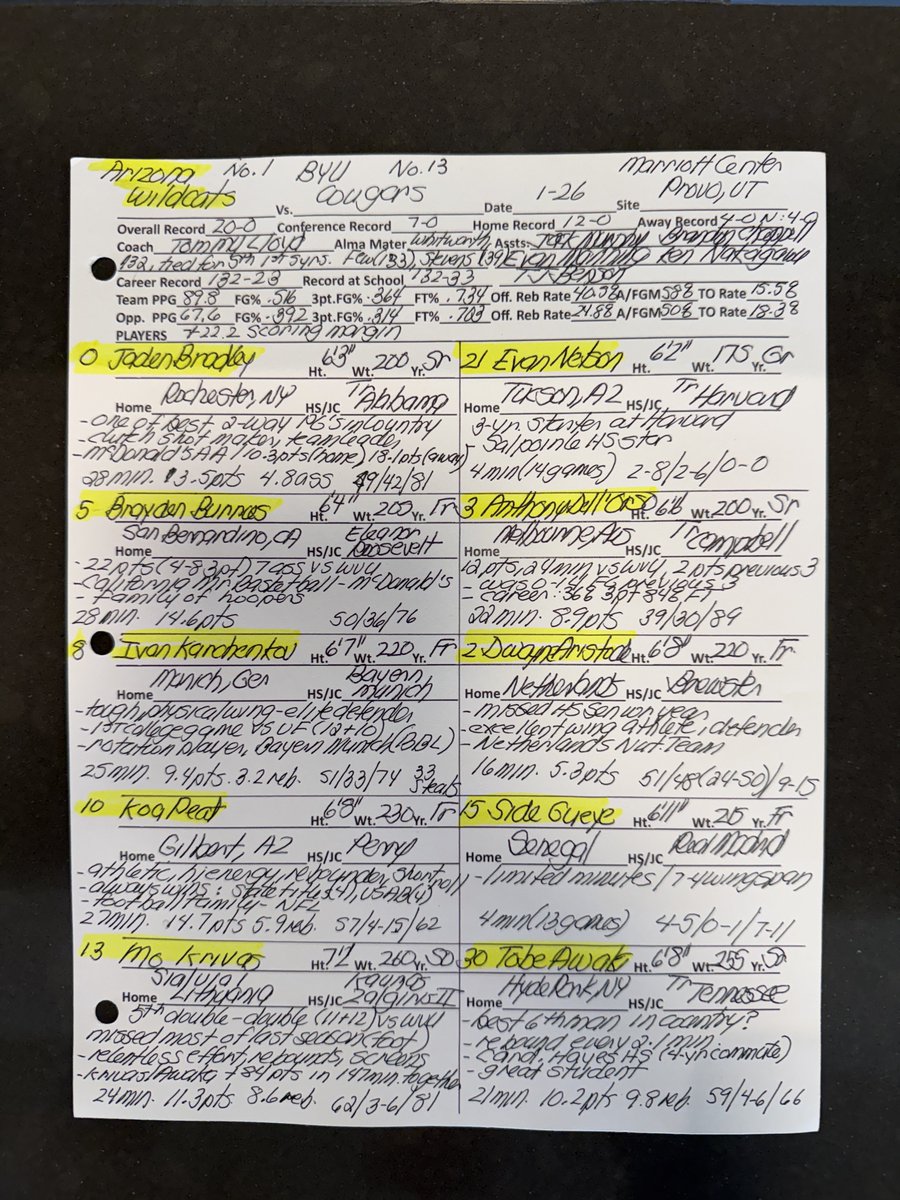 Arizona No.1 BYU No.13 Marriott Center
Wildcats Vs. Cougars Date 1-26 Site Provo, UT
Overall Record 20-0 Conference Record 7-0 Home Record 12-0 Away Record 4-0 N:4-0
Coach Tommy Lloyd Alma Mater Whitworth Assts. Jack Murphy Brandon Chappell
132, tied for 5th 1st 5yrs. Few(133), Stevens (139) Evan Manning Ken Nakagawa
Career Record 132-33 Record at School 132-33 TJ Benson
Team PPG 89.8 FG% .516 3pt.FG% .364 FT% .734 Off. Reb Rate 40.5% A/FGM 58% TO Rate 15.5%
Opp. PPG 67.6 FG% .392 3pt.FG% .314 FT% .703 Off. Reb Rate 24.8% A/FGM 50% TO Rate 18.3%
PLAYERS +22.2 scoring margin
0 Jaden Bradley Ht. 6'3" Wt. 200 Yr. Sr
Home Rochester, NY HS/JC Tr Alabama
- one of best 2-way PG's in country
- clutch shot maker, team leader
- McDonald's AA / 10.3pts(home) 18.1pts(away)
28min. 13.5pts 4.8ass 49/42/81
21 Evan Nelson Ht. 6'2" Wt. 175 Yr. Gr
Home Tucson, AZ HS/JC Tr Harvard
3-yr. starter at Harvard
- Salpointe HS Star
4min(14games) 2-8/2-6/0-0
5 Brayden Burries Ht. 6'4" Wt. 200 Yr. Fr
Home San Bernardino, CA HS/JC Eleanor Roosevelt
- 22pts(4-8 3pt), 7ass vs WVU
- California Mr. Basketball - McDonald's
- family of hoopers
28min. 14.6pts 50/36/76
3 Anthony Dell'Orso Ht. 6'6 Wt. 200 Yr. Sr
Home Melbourne, Aus HS/JC Tr Campbell
12pts, 24min vs WVU, 2pts previous 3
- was 0-14 FG previous 3
- career: 366 3pt 848 FT
22min. 8.9pts 39/30/89
8 Ivan Karchenkov Ht. 6'7" Wt. 220 Yr. Fr
Home Munich, Ger HS/JC Bayern Munich
- tough, physical wing - elite defender
- 1st college game vs UF (12+10)
- rotation player, Bayern Munich (BBL)
25min. 9.4pts. 3.2reb. 51/33/74 33 steals
2 Dwayne Aristode Ht. 6'8" Wt. 220 Yr. Fr
Home Netherlands HS/JC Brewster
- missed HS Senior year
- excellent wing athlete, defender
- Netherlands Nat. Team
16min. 5.3pts 51/48(24-50)/9-15
10 Koa Peat Ht. 6'8" Wt. 230 Yr. Fr
Home Gilbert, AZ HS/JC Perry
- athletic, hi energy, rebounder, short roll
- always wins: state titles(4), USAB(4)
- football family - NFL
27min. 14.7pts 5.9reb. 57/4-15/62
15 Sidi Gueye Ht. 6'11" Wt. 215 Yr. Fr
Home Senegal HS/JC Real Madrid
- limited minutes / 7-4 wingspan
4min(13games) 4-5/0-1/7-11
13 Mo Krivas Ht. 7'2" Wt. 260 Yr. So
Home Siauliai Lithuania HS/JC Kaunas Zalgiris II
- 5th double-double (11+12) vs WVU
missed most of last season (foot)
- relentless effort, rebounds, screens
- Krivas/Awaka +84pts in 147min. together
24min. 11.3pts 8.6reb. 62/3-6/81
30 Tobe Awaka Ht. 6'8" Wt. 255 Yr. Sr
Home Hyde Park, NY HS/JC Tr Tennessee
- best 6th man in country?
- rebound every 2.1 min.
- Card. Hayes HS (4-yr commute)
- great student
21min. 10.2pts 9.8reb. 59/4-6/66